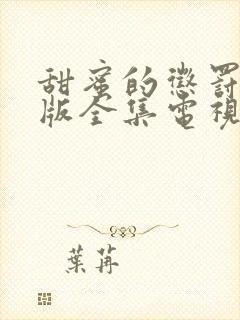 甜蜜的懲罰
版全集電視
葉苒